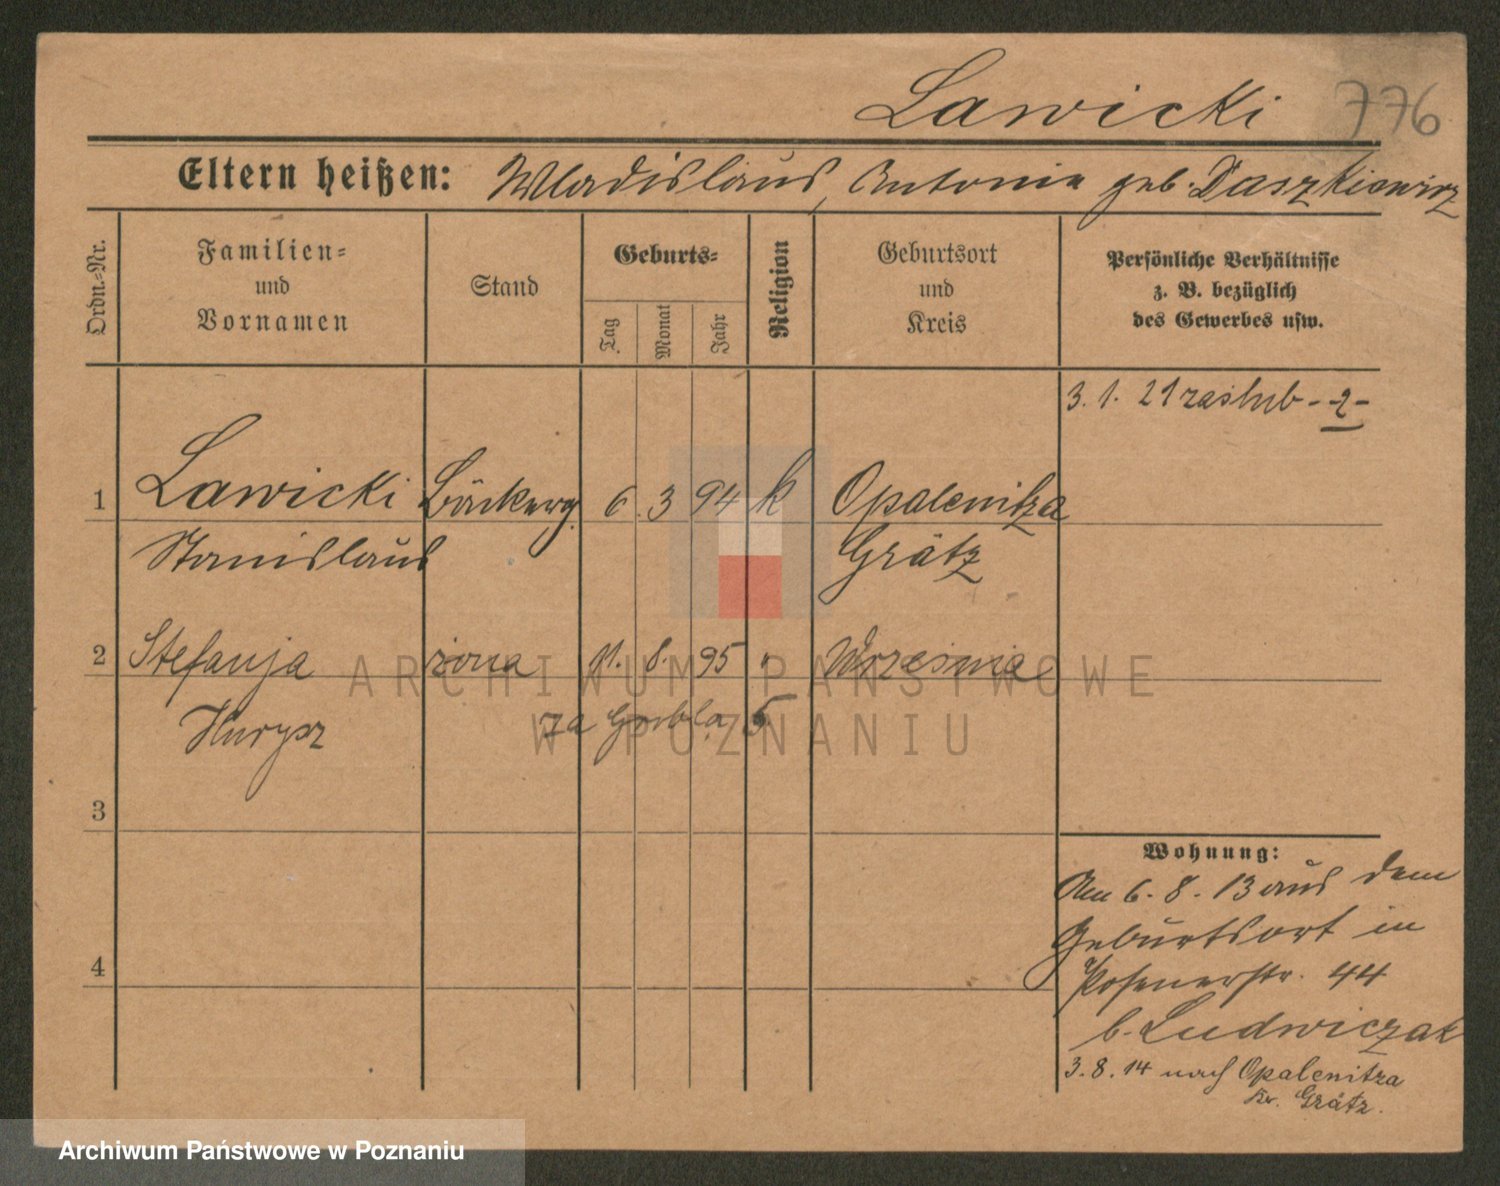 Lawicki 776
Eltern heißen: Wladislaus, Antonie geb. Daszkiewicz
Ordn.-Nr.
Familien-
und
Vornamen
Stand
Geburts-
Tag
Monat
Jahr
Religion
Geburtsort
und
Kreis
Persönliche Verhältnisse
z. B. bezüglich
des Gewerbes usw.
3. 1. 21 zaślub - 2 -
1 Lawicki Bäckerg. 6 3 94 k Opalenitza
Stanislaus Grätz
2 Stefanja żona 11. 8. 95 " Września
Kurysz za Groblą 5
3
4
Wohnung:
Am 6. 8. 13 aus dem
Geburtsort in
Posenerstr. 44
b. Ludwiczak
3. 8. 14 nach Opalenitza
Kr. Grätz.
ARCHIWUM PAŃSTWOWE
W POZNANIU
Archiwum Państwowe w Poznaniu